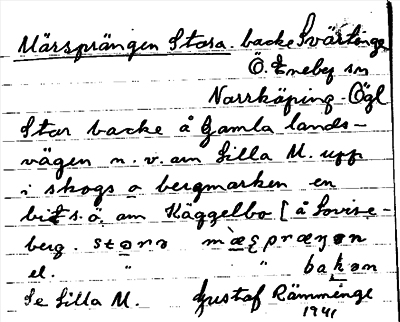 Märsprängen Stora. backe Svärtinge
Ö. Eneby sn
Norrköping Ögl
Stor backe å Gamla lands-
vägen n. v. om Lilla M. upp
i skogs o bergmarken en
bit s. ö. om Käggelbo [å Lovise-
berg. stơrɑ mæ̀ʂpræŋən
el. " " bakən
Se Lilla M. Gustaf Rämminge
1941